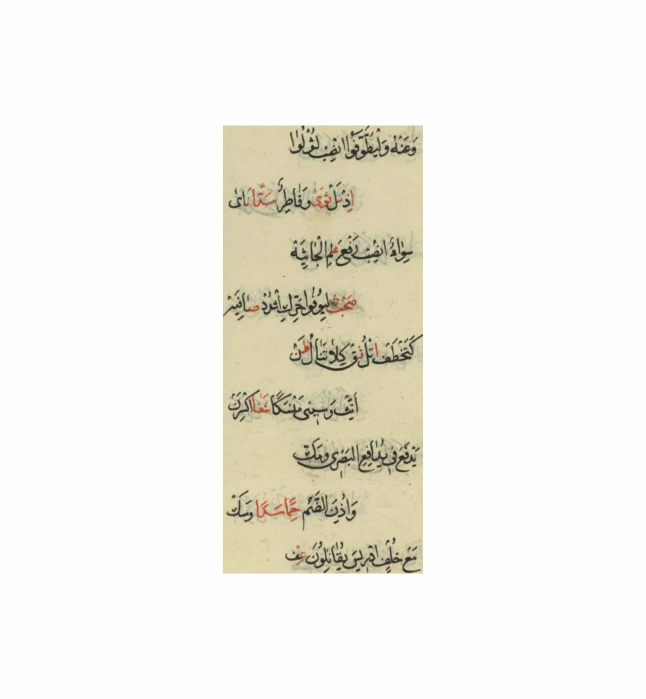 وَعَنْهُ وَلْيَطَّوَّفُوا انصِبْ لُؤْلُؤًا
إِذْ نَلْ ثَوَى وَفَاطِرًا مَدًا نَأى
سَوَاءٌ انصِبْ رَفْعَ عِلْمِ الْجَاثِيَهْ
صَحْبٌ لِيُوفُوا حَرِّكِ اشْدُدْ صَافِيَهْ
كَتَخْطَفُ اتْلُ ثِقْ كِلَا يَنَالُ ظَنْ
أَنِّثْ وَسِينَيْ مَنْسَكًا شَفَا اكْسِرَنْ
يَدْفَعُ فِي يُدَافِعُ الْبَصْرِي وَمَكْ
وَأُذِنَ الضَّمُّ حِمًا مَدًا نَسَكْ
مَعْ خُلْفِ إِدْرِيسَ يُقَاتَلُونَ عَفْ